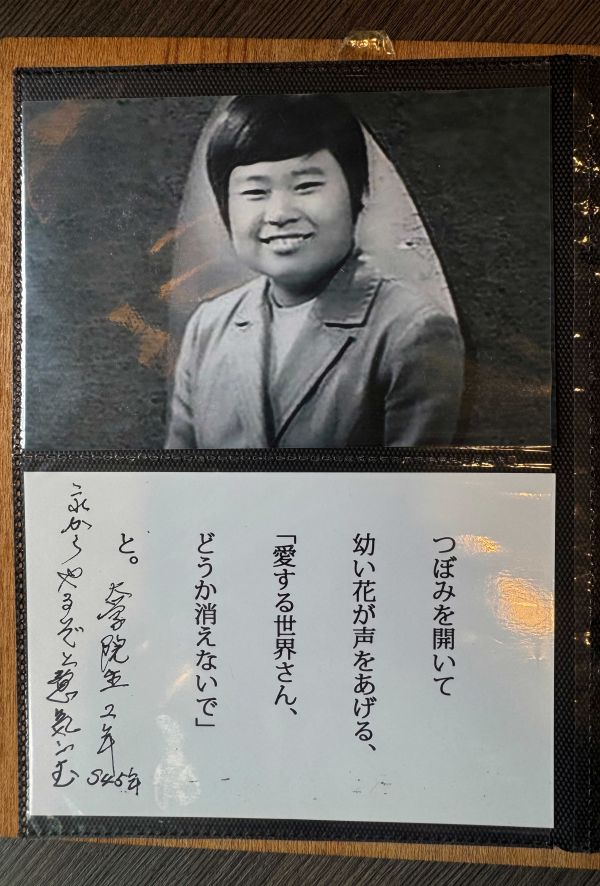 つぼみを開いて
幼い花が声をあげる、
「愛する世界さん、
どうか消えないで」
と。
大学院生2年 S45年
これからやるぞと意気